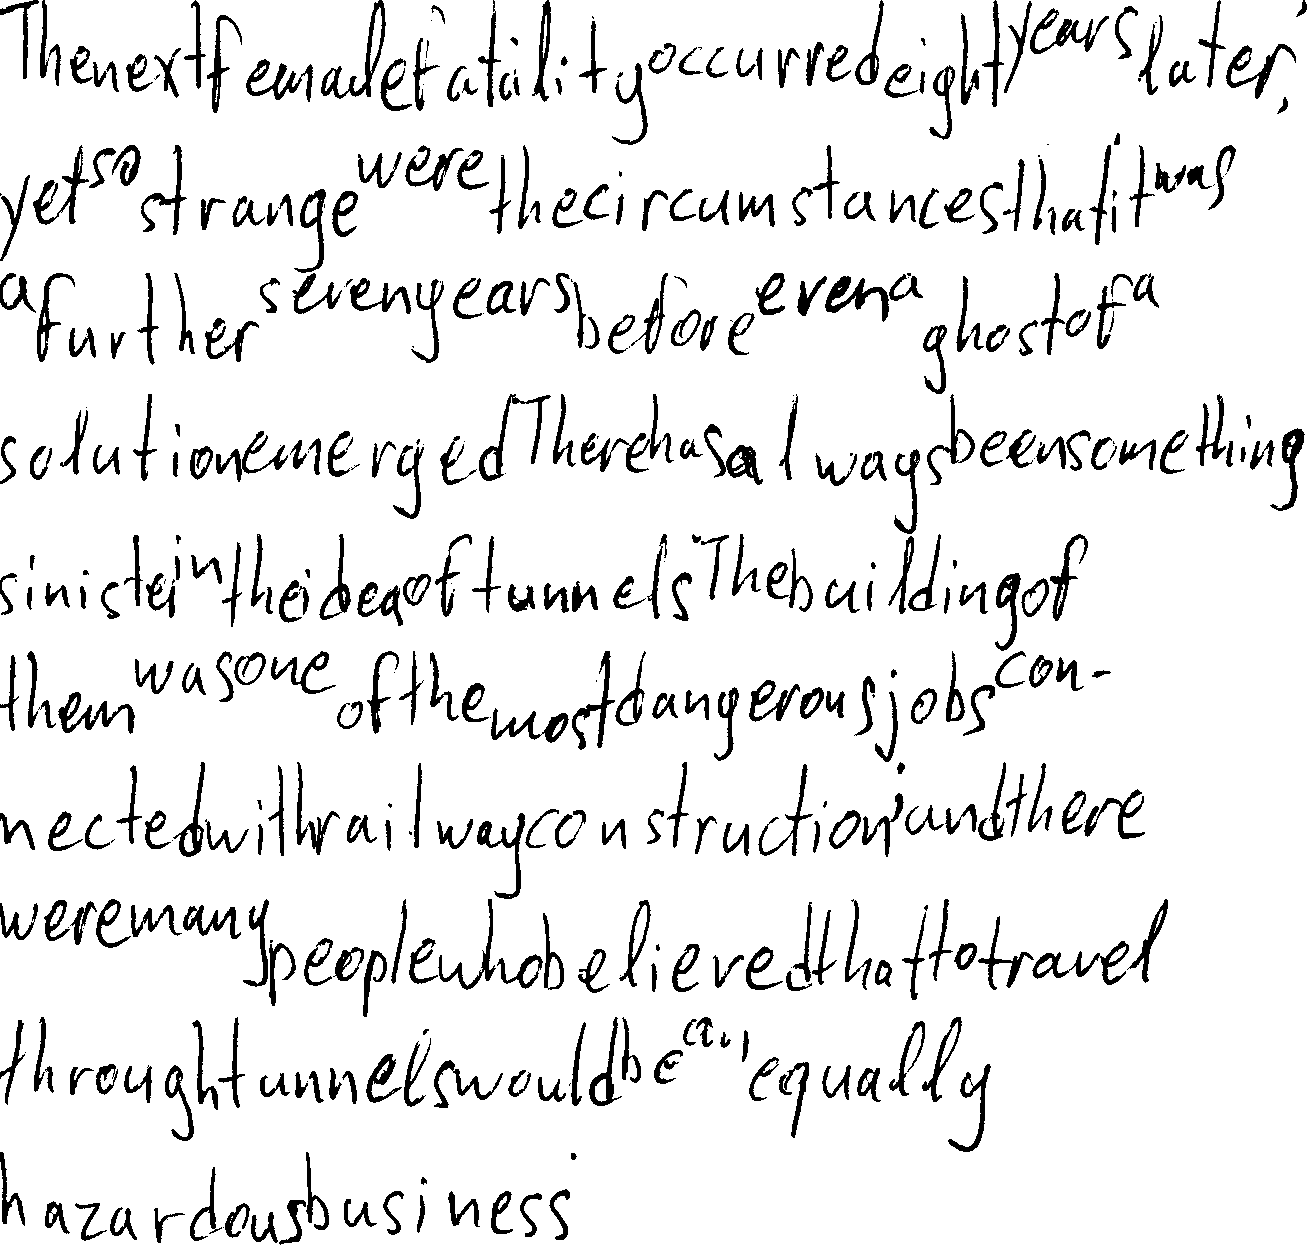 The next female fatality occurred eight years later,
yet so strange were the circumstances that it was
a further seven years before even a ghost of a
solution emerged. There has always been something
sinister in the idea of tunnels. The building of
them was one of the most dangerous jobs con-
nected with railway construction, and there
were many people who believed that to travel
through tunnels would be an equally
hazardous business.